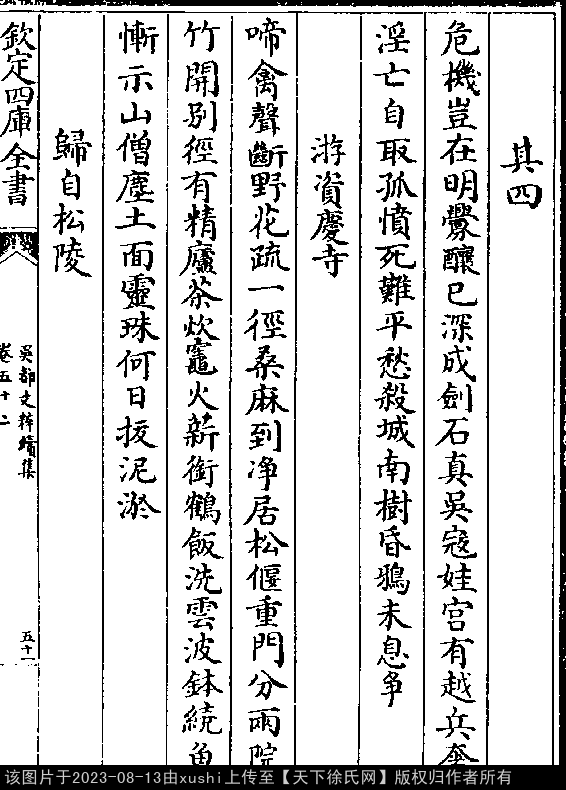 其四
危機豈在明釁釀已深成劍石真吳寇娃宮有越兵奢
淫亡自取孤憤死難平愁殺城南樹昏鴉未息爭
游資慶寺
啼禽聲斷野花疏一徑桑麻到淨居松偃重門分兩院
竹開別徑有精廬茶炊竈火新銜鶴飯洗雲波鉢繞魚
慚示山僧塵土面靈珠何日拔泥淤
歸自松陵
欽定四庫全書
吳都文粹續集
卷五十二
五十一
该图片于2023-08-13由xushi上传至【天下徐氏网】版权归作者所有